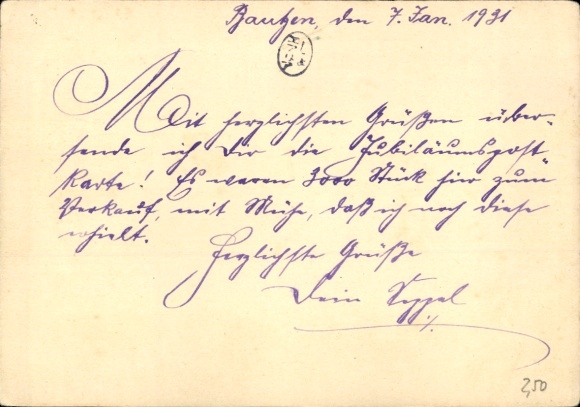 Bautzen, den 7. Jan. 1931
Mit herzlichsten Grüßen über-
sende ich Dir die Jubiläumspost-
karte! Es waren 3000 Stück hier zum
Verkauf, mit Mühe, daß ich noch diese
erhielt.
Herzlichste Grüße
Dein Seppel
2,50